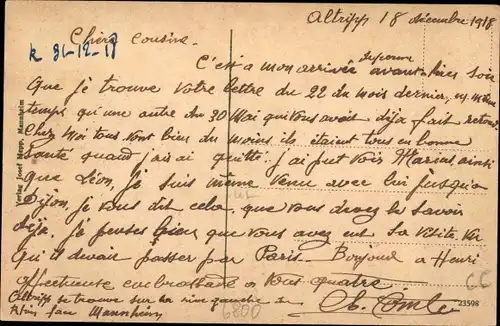 Altripp 18 décembre 1918
Chère cousine -
R 31-12-18
C'est a mon arrivée avant-hier soir
Que je trouve votre lettre du 22 du mois dernier, en même
temps qu'une autre du 30 Mai qui vous avait déja fait retour.
Chez moi tous vont bien du moins ils étaient tous en bonne
santé quand j'ai quitté. j'ai put voir Marius, ainsi
que Léon, je suis même venu avec lui jusqu'a
Dijon, je vous dit cela, que vous devez le savoir
déja, je penses bien que vous avez eut sa visite. vu
qu'il devait passer par Paris. Bonjour a Henri
affectueuse embrassade a vous quatre
Altripp se trouve sur la rive gauche du
Rhin face Mannheim
Verlag Josef Mopp, Mannheim
23598
6800